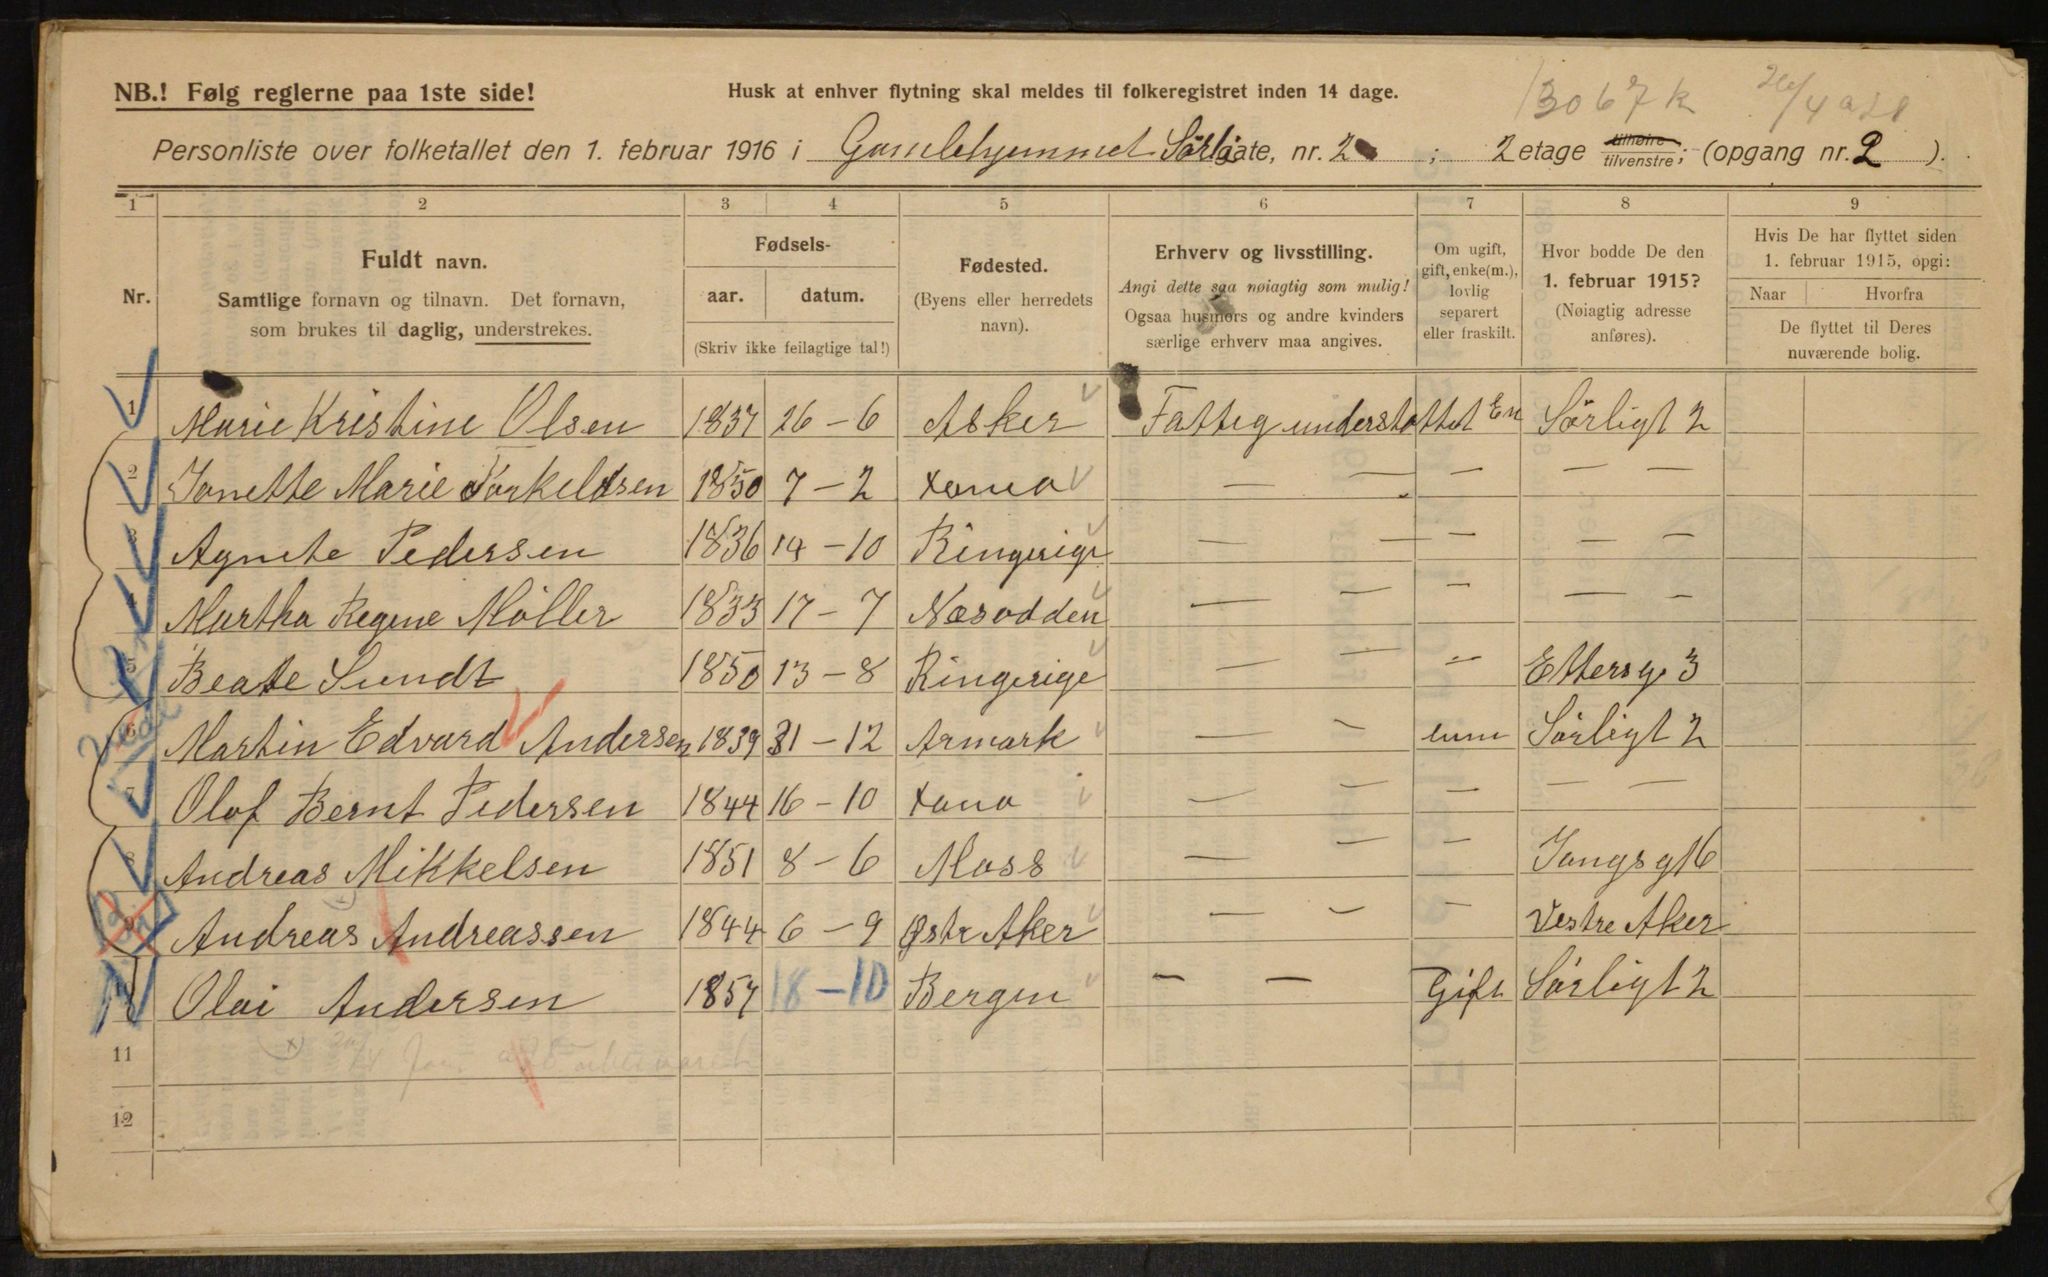 NB.! Følg reglerne paa 1ste side! Husk at enhver flytning skal meldes til folkeregistret inden 14 dage. 3067 k
Personliste over folketallet den 1. februar 1916 i Gamlehjemmet Sørligate, nr. 2 ; 2 etage tilhøire tilvenstre; (opgang nr. 2 ).
1 2 3 4 5 6 7 8 9
Nr. Fuldt navn. Samtlige fornavn og tilnavn. Det fornavn, som brukes til daglig, understrekes.
Fødsels- aar. datum. (Skriv ikke feilagtige tal!)
Fødested. (Byens eller herredets navn).
Erhverv og livsstilling. Angi dette saa nøiagtig som mulig! Ogsaa husmors og andre kvinders særlige erhverv maa angives.
Om ugift, gift, enke(m.), lovlig separert eller fraskilt.
Hvor bodde De den 1. februar 1915? (Nøiagtig adresse anføres).
Hvis De har flyttet siden 1. februar 1915, opgi: Naar Hvorfra De flyttet til Deres nuværende bolig.
1 Marie Kristine Olsen 1837 26-6 Asker Fattigunderstøttet En Sørligt 2
2 Janette Marie Torkeldsen 1850 7-2 Xania — — — — —
3 Agnete Pedersen 1836 14-10 Ringerige — — — — —
4 Martha Regine Møller 1833 17-7 Næsodden — — — — —
5 Beate Sundt 1850 13-8 Ringerige — — — Ettersg. 3
6 Martin Edvard Andersen 1839 31-12 Aremark — — Sørligt 2
7 Olof Bernt Pedersen 1844 16-10 Xania — — — — —
8 Andreas Mikkelsen 1851 8-6 Moss — — — Jongsg 16
9 Andreas Andreassen 1844 6-9 Østre Aker — — — Vestre Aker
10 Olai Andersen 1857 18-10 Bergen — — Gift Sørligt 2
11
12